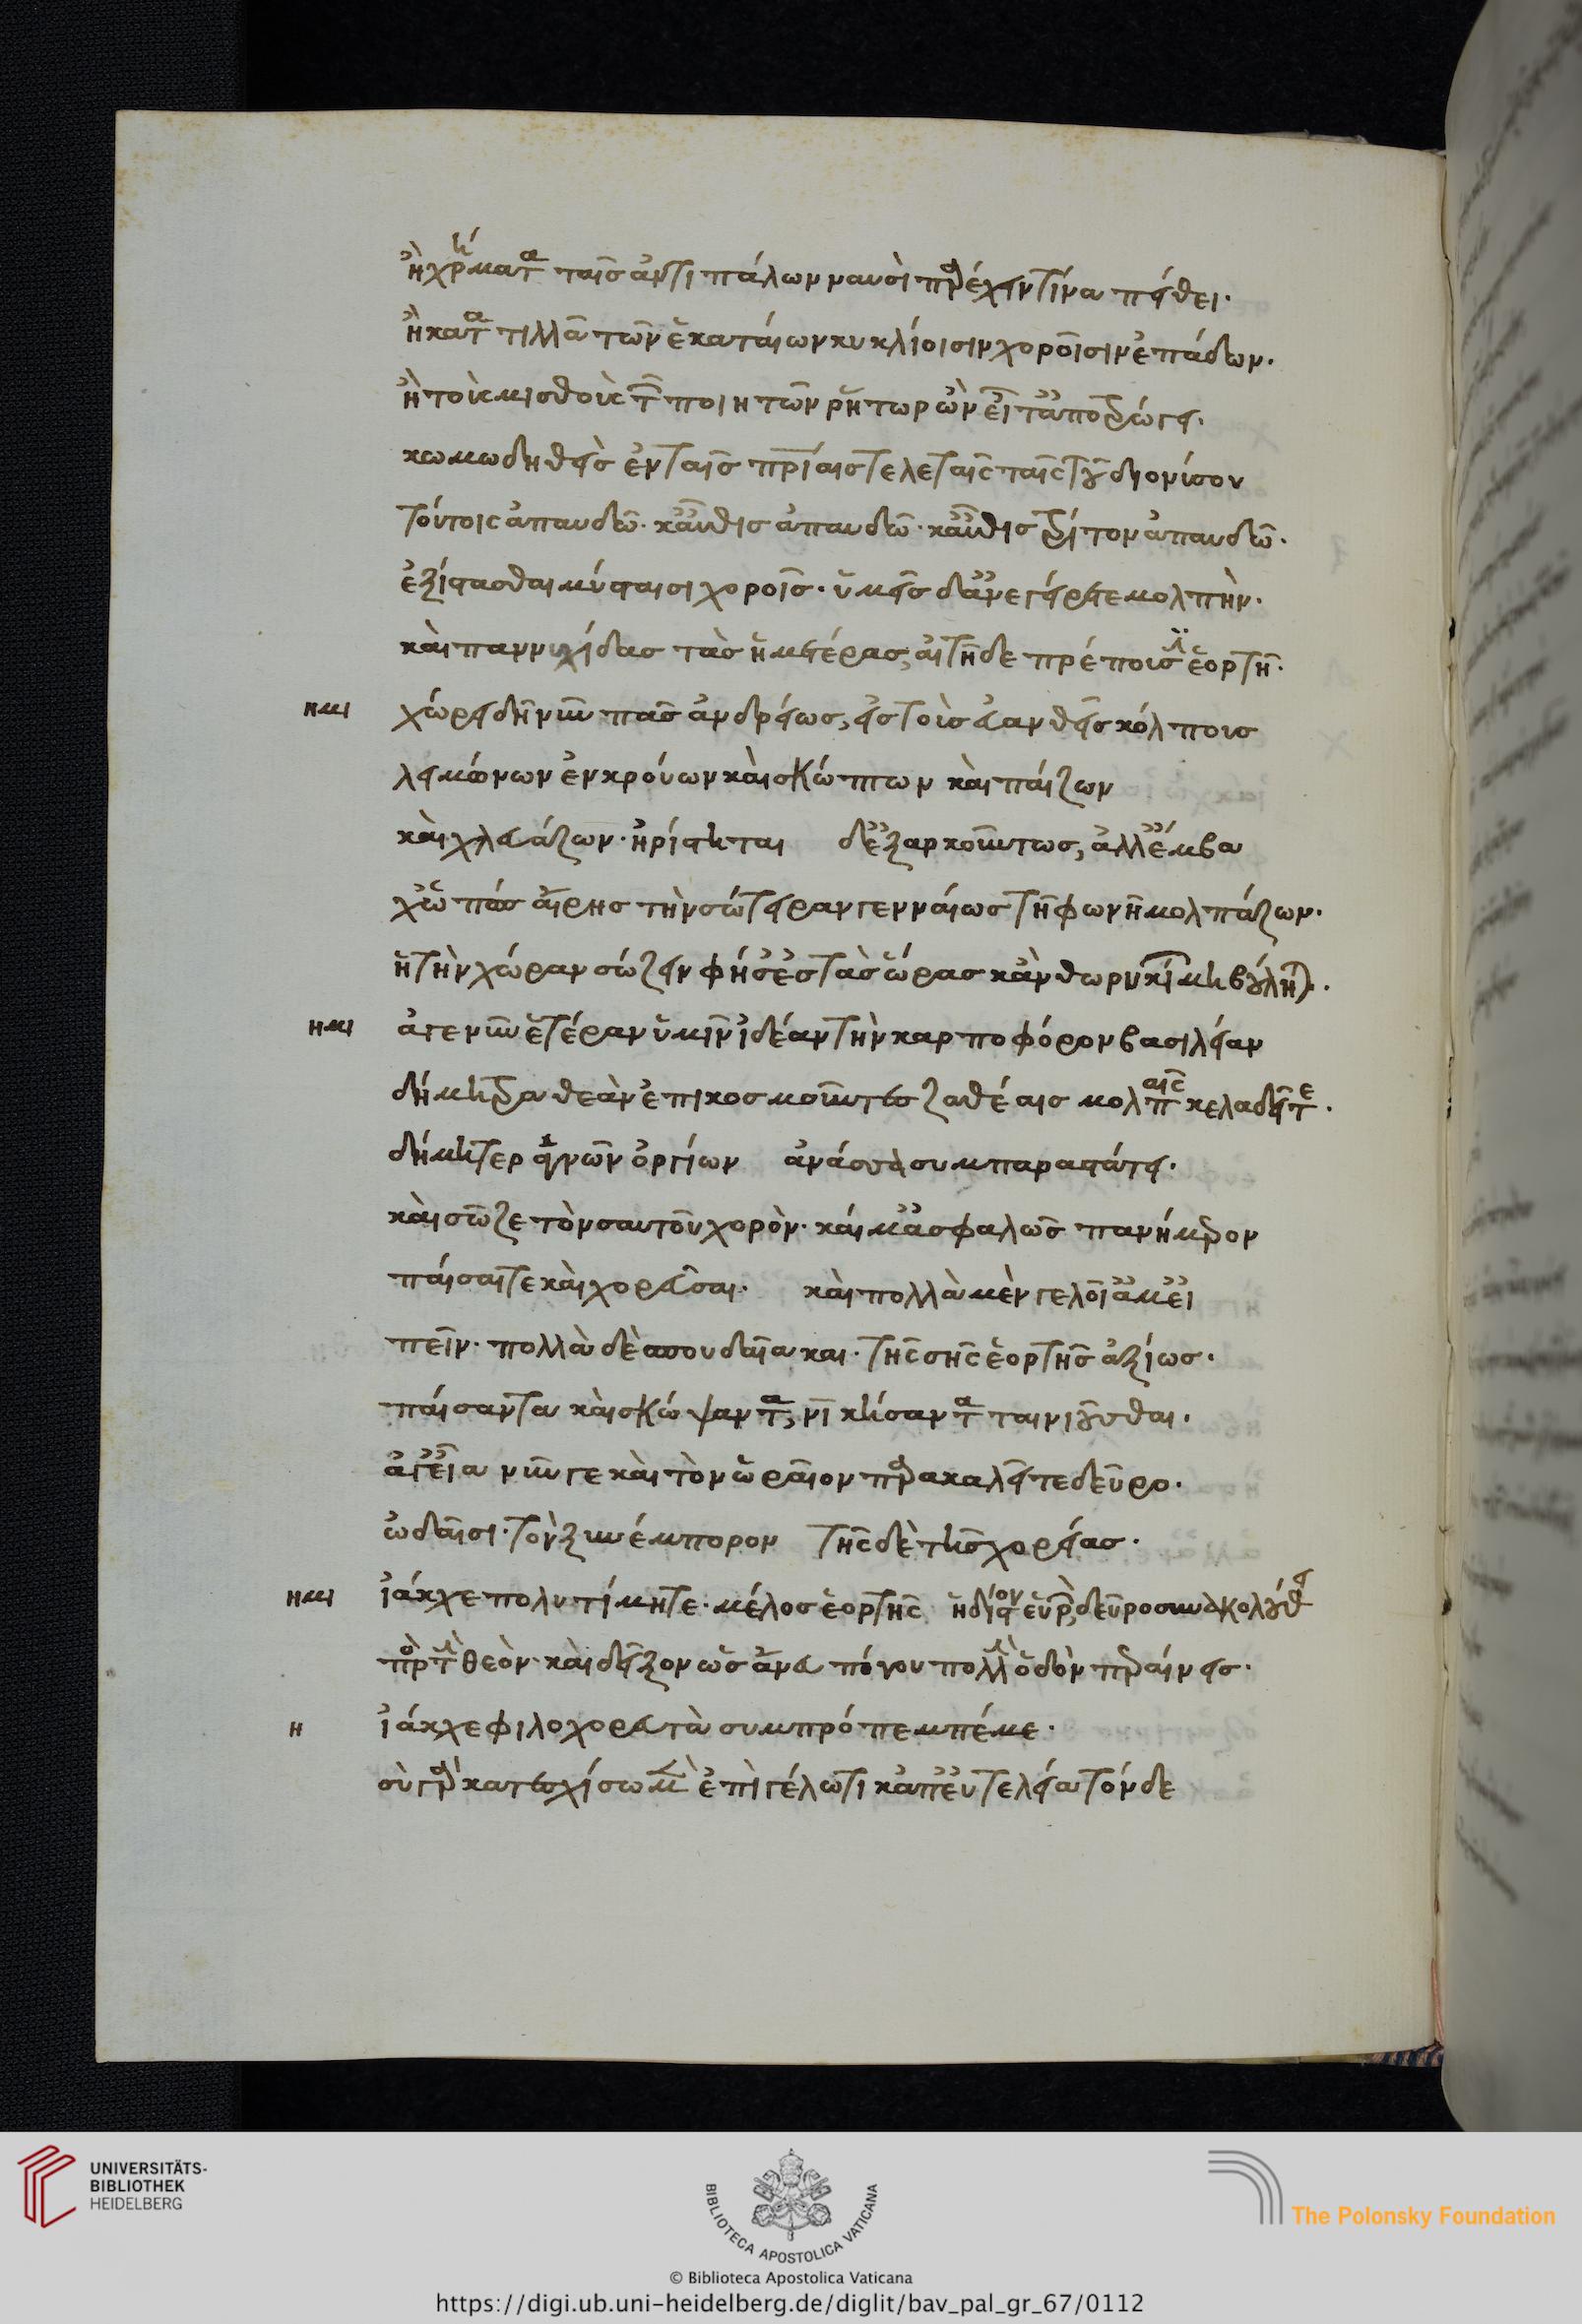 ἢ χρήματα ταῖς ἀντιπάλων ναυσὶ παρέχειν τινὰ πείθει.
ἢ κατατιλλᾶ τῶν ἑκαταίων κυκλίοισιν χοροῖσιν ἐπάδων.
ἢ τοὺς μισθοὺς τῶν ποιητῶν ῥήτωρ ὢν εἶτ' ἀποτρώγει.
κωμωδηθεὶς ἐν ταῖς πατρίαις τελεταῖς ταῖς τοῦ διονύσου
τούτοις ἀπαυδῶ. καὖθις ἀπαυδῶ. καὖθις τρίτον ἀπαυδῶ.
ἐξίστασθαι μύσταισι χοροῖς. ὑμεῖς δ' ἀνεγείρετε μολπὴν.
καὶ παννυχίδας τὰς ἡμετέρας, αἳ τῆδε πρέπουσιν ἑορτῆ.
ημι χώρει δὴ νῦν πᾶς ἀνδρείως, εἰς τοὺς εὐανθεῖς κόλπους
λειμώνων ἐνκρούων καὶ σκώπτων καὶ παίζων
καὶ χλευάζων. ἠρίστηται δ' ἐξαρκούντως, ἀλλ' ἔμβα
χὤπως αἴρης τὴν σώτειραν γενναίως τῆ φωνῆ μολπάζων.
ἣ τὴν χώραν σώζειν φήσ' ἐς τὰς ὥρας κἂν θωρυκίων μὴ βούληται.
ημι ἄγε νῦν ἑτέραν ὑμῖν ἰδέαν τὴν καρποφόρον βασίλειαν
δήμητρα θεὰν ἐπικοσμοῦντες ζαθέαις μολπαῖς κελαδεῖτε.
δήμητερ ἁγνῶν ὀργίων ἀνάσσα συμπαραστάτει.
καὶ σῶζε τὸν σαυτοῦ χορὸν. καί μ' ἀσφαλῶς πανήμερον
παίσαί τε καὶ χορεῦσαι. καὶ πολλὰ μὲν γελοῖά μ' εἰ
πεῖν. πολλὰ δὲ σπουδαῖα και. τῆς σῆς ἑορτῆς ἀξίως.
παίσαντα καὶ σκώψαντα, νικήσαντα ταινιοῦσθαι.
ἄγ' εἶα νῦν γε καὶ τὸν ὡραῖον παρακαλεῖτε δεῦρο.
ὠδαῖσι. τὸν ξυνέμπορον τῆς δὲ τῆς χορείας.
ημι ἰάκχε πολυτίμητε. μέλος ἑορτῆς ἥδιστον εὑρὼν, δεῦρο συνακολούθει
πρὸς τὴν θεὸν. καὶ δεῖξον ὡς ἄνευ πόνου πολλὴν ὁδὸν περαίνεις.
η ἰάκχε φιλοχορευτὰ συμπρόπεμπέ με.
σὺ γὰρ κατεσχίσω μὲν ἐπὶ γέλωτι κἀπ' εὐτελεία τόνδε
UNIVERSITÄTS-
BIBLIOTHEK
HEIDELBERG
BIBLIOTECA APOSTOLICA VATICANA
The Polonsky Foundation
© Biblioteca Apostolica Vaticana
https://digi.ub.uni-heidelberg.de/diglit/bav_pal_gr_67/0112